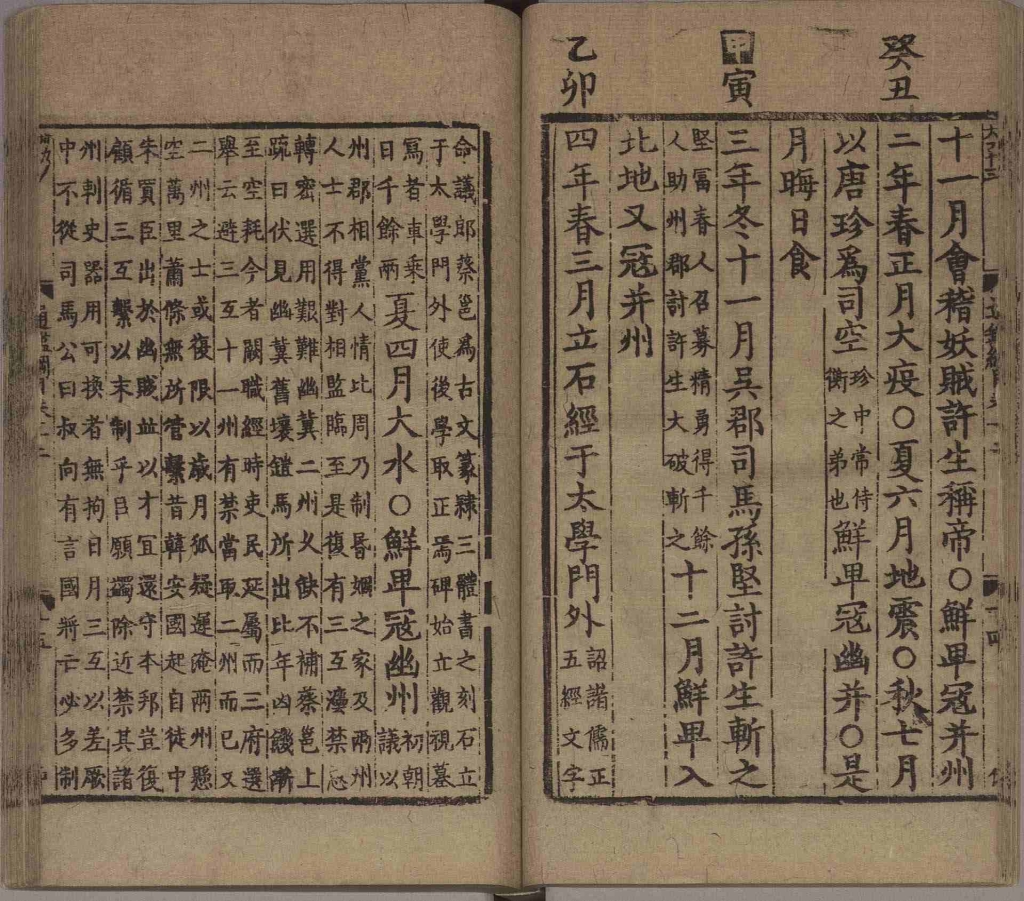 癸丑
十一月會稽妖賊許生稱帝○鮮卑冦并州
二年春正月大疫○夏六月地震○秋七月
以唐珍爲司空珍中常侍衡之弟也鮮卑冦幽并○是
月晦日食
甲寅
三年冬十一月吳郡司馬孫堅討許生斬之
堅富春人召募精勇得千餘人助州郡討許生大破斬之十二月鮮卑入
北地又冦并州
乙卯
四年春三月立石經于太學門外詔諸儒正五經文字
命議郎蔡邕爲古文篆隸三體書之刻石立
于太學門外使後學取正焉碑始立觀視墓
寫者車乘日千餘兩夏四月大水○鮮卑冦幽州初朝議以
州郡相黨人情比周乃制昬姻之家及兩州
人士不得對相監臨至是復有三互灋禁忌
轉密選用艱難幽冀二州久缺不補蔡邕上
疏曰伏見幽冀舊壤鎧馬所出比年凶饑漸
至空耗今者闕職經時吏民延屬而三府選
舉云避三互十一州有禁當取二州而已又
二州之士或復限以歲月狐疑遲淹兩州懸
空萬里蕭條無所管繫昔韓安國起自徒中
朱買臣出於幽賤並以才宜還守本邦豈復
顧循三互繫以末制乎臣願蠲除近禁其諸
州刺史器用可換者無拘日月三互以差厥
中不從司馬公曰叔向有言國將亡必多制